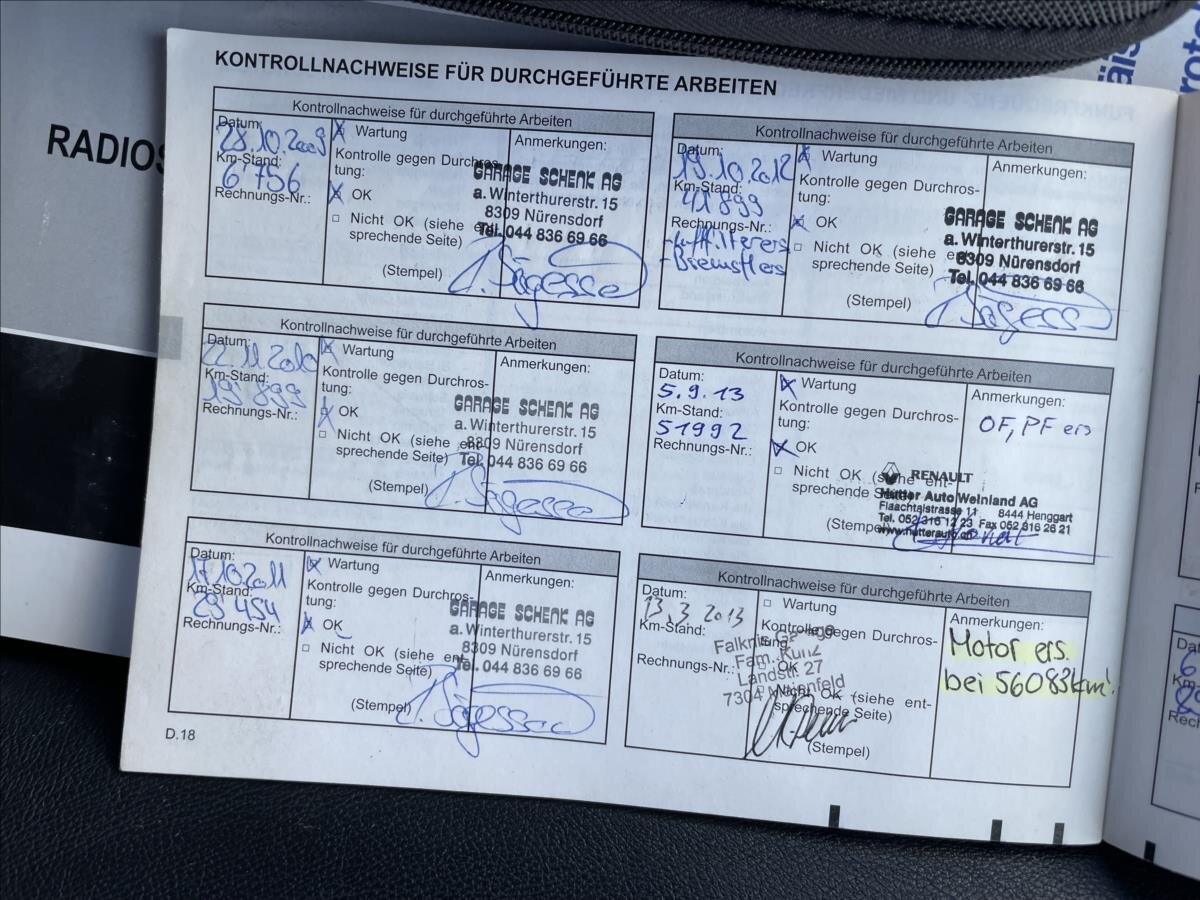 RADIOS
KONTROLLNACHWEISE FÜR DURCHGEFÜHRTE ARBEITEN
Kontrollnachweise für durchgeführte Arbeiten
Datum:
28.10.2009
Km-Stand:
6'756
Rechnungs-Nr.:
Wartung
Kontrolle gegen Durchros-
tung:
OK
Nicht OK (siehe ent-
sprechende Seite)
(Stempel)
Anmerkungen:
GARAGE SCHENK AG
a. Winterthurerstr. 15
8309 Nürensdorf
Tel. 044 836 69 66
Kontrollnachweise für durchgeführte Arbeiten
Datum:
22.11.2010
Km-Stand:
19'899
Rechnungs-Nr.:
Wartung
Kontrolle gegen Durchros-
tung:
OK
Nicht OK (siehe ent-
sprechende Seite)
(Stempel)
Anmerkungen:
GARAGE SCHENK AG
a. Winterthurerstr. 15
8309 Nürensdorf
Tel. 044 836 69 66
Kontrollnachweise für durchgeführte Arbeiten
Datum:
17.10.2011
Km-Stand:
29'454
Rechnungs-Nr.:
Wartung
Kontrolle gegen Durchros-
tung:
OK
Nicht OK (siehe ent-
sprechende Seite)
(Stempel)
Anmerkungen:
GARAGE SCHENK AG
a. Winterthurerstr. 15
8309 Nürensdorf
Tel. 044 836 69 66
D.18
Kontrollnachweise für durchgeführte Arbeiten
Datum:
19.10.2012
Km-Stand:
41'899
Rechnungs-Nr.:
-Luftfilter ers
-Bremsfl ers
Wartung
Kontrolle gegen Durchros-
tung:
OK
Nicht OK (siehe ent-
sprechende Seite)
(Stempel)
Anmerkungen:
GARAGE SCHENK AG
a. Winterthurerstr. 15
8309 Nürensdorf
Tel. 044 836 69 66
Kontrollnachweise für durchgeführte Arbeiten
Datum:
5.9.13
Km-Stand:
51992
Rechnungs-Nr.:
Wartung
Kontrolle gegen Durchros-
tung:
OK
Nicht OK (siehe ent-
sprechende Seite)
(Stempel)
Anmerkungen:
OF, PF ers
RENAULT
Hutter Auto Weinland AG
Flaachtalstrasse 11 8444 Henggart
Tel. 052 316 12 23 Fax 052 316 26 21
www.hutterauto.ch
Kontrollnachweise für durchgeführte Arbeiten
Datum:
13.3.2013
Km-Stand:
Rechnungs-Nr.:
Wartung
Kontrolle gegen Durchros-
tung:
OK
Nicht OK (siehe ent-
sprechende Seite)
(Stempel)
Falknis Garage
Fam. Kunz
Landstr. 27
7304 Maienfeld
Anmerkungen:
Motor ers.
bei 56083km!